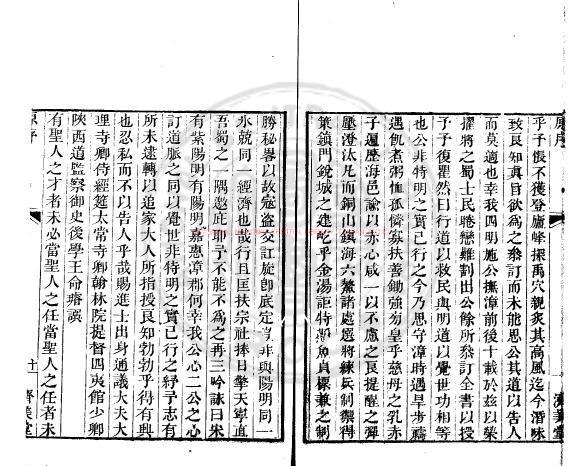 乎予恨不獲登廬峰探禹穴親炙其高風迄今潛味
致良知真旨欲為之叅訂而未能思公其道以告人
而莫適也幸我四明施公撫漳前後十載於玆以榮
擢將之蜀士民聴戀難割出公餘所叅訂全書以授
予予復瞿然曰行道以救民與明道以覺世功相倚
也公非特明之實已行之今乃思守漳時遇旱步禱
遇飢煮粥恤孤憐寡扶善鋤強匆皇乎慈母之乳赤
子遍歷海邑諭以赤心咸一以不慮之良提醒之彈
壓澄汰凡而銅山鎮海六鰲諸處選將練兵制禦得
策鎮門銳城之建屹乎金湯詎特懸魚貞操兼之制
勝秘畧以故寇盗交訌旋即底定豈非與陽明同一
氷兢同一經濟也哉行且匡扶宗社捧日擎天寧直
吾蜀之一隅邀庇耶予不能不為之再三吟詠曰朱
有紫陽明有陽明嘉惠漳郡何幸我公心二公之心
訂道脈之同以覺世非特明之實已行之紓予志有
所未逮轉以追家大人所指授良知勃勃乎得有興
也忍私而不以告人乎哉賜進士出身通議大夫大
理寺卿侍經筵太常寺卿翰林院提督四夷館少卿
陝西道監察御史後學王命璿譔
有聖人之才者未必當聖人之任當聖人之任者未
原序
十一
濟美堂